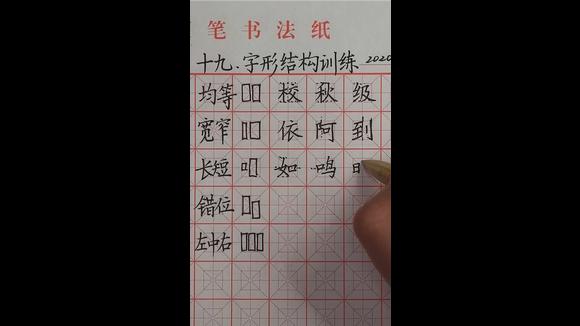 笔书法纸
十九.字形结构训练 2020
均等 校 秋 级
宽窄 依 阿 到
长短 如 鸣
错位
左中右